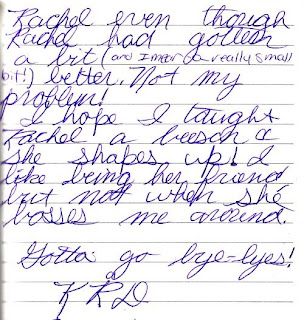 Rachel even though
Rachel had gotten
a bit (and I mean a really small
bit!) better. Not my
problem!
I hope I taught
Rachel a leeson &
she shapes up! I
like being her friend
but not when she
bosses me around.
Gotta go bye-byes!
KRD